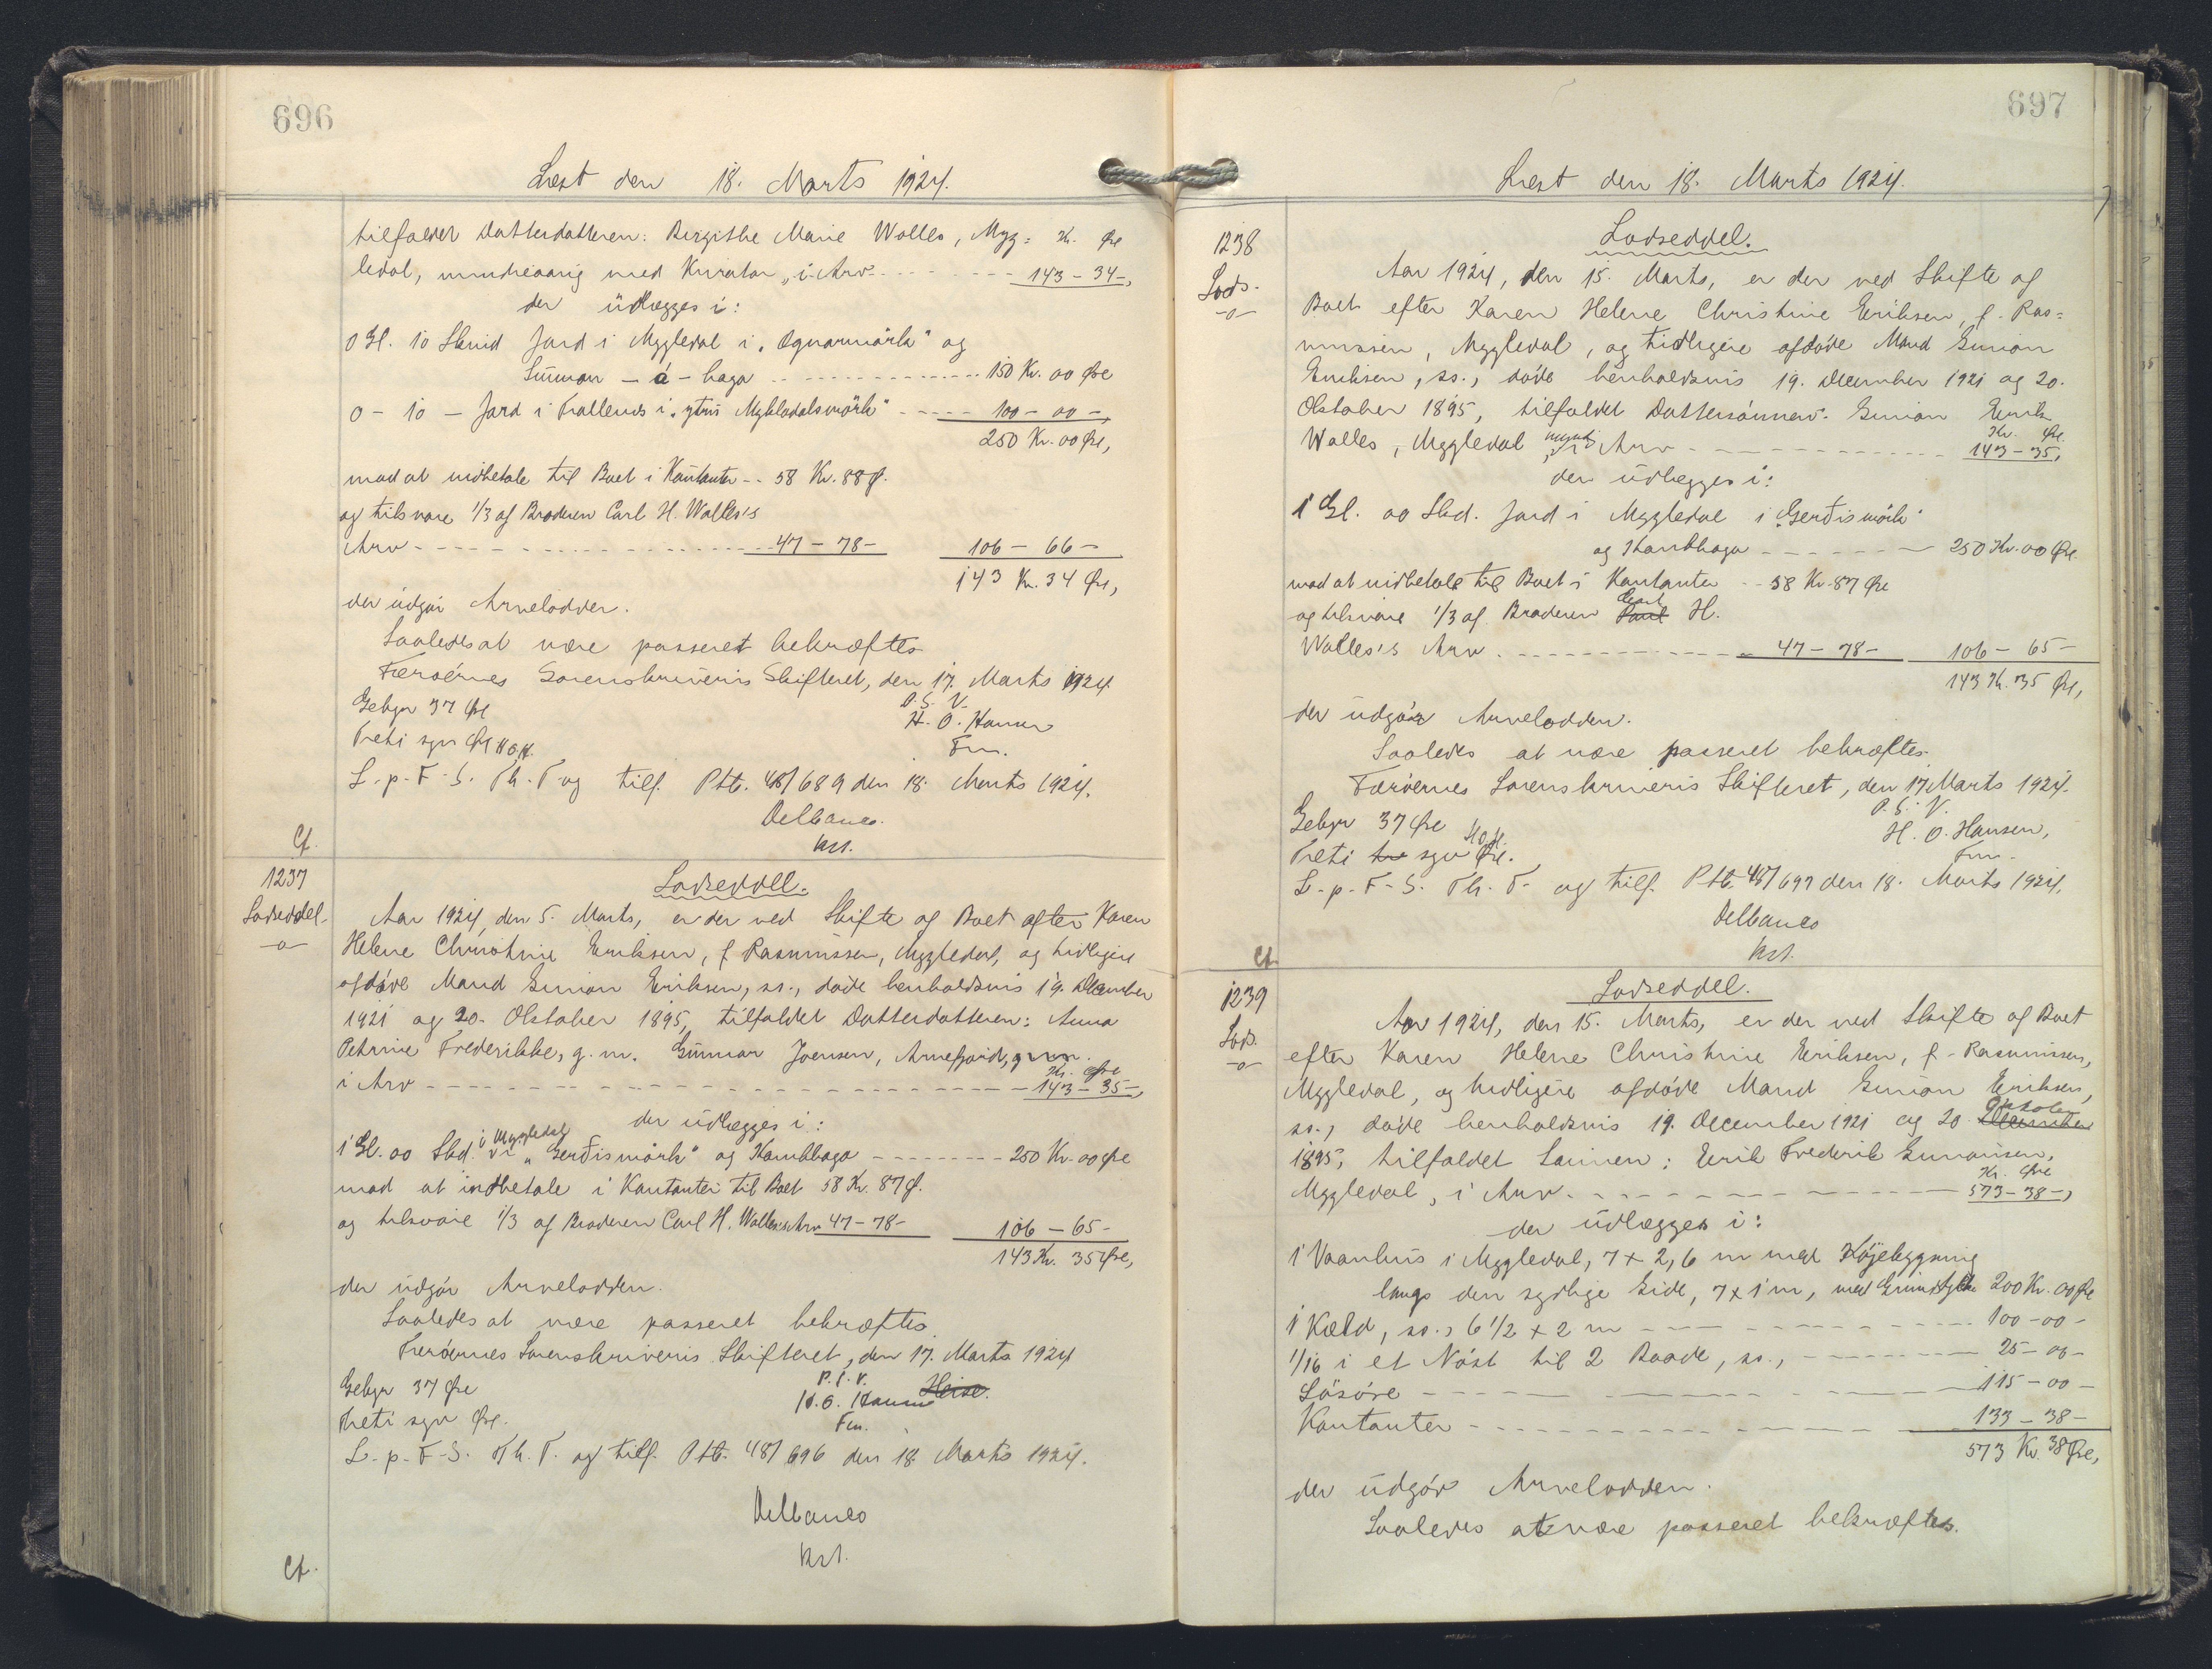 696
Læst den 18. Marts 1924.
tilfaldet Datterdatteren: Birgithe Marie Walles, Myg= Kr. Øre
ledal, mindreaarig med Kurator, i Arv - - - 143 - 34 -,
der udlægges i:
0 Gl. 10 Skind Jord i Mygledal i "Øgnarmörk" og
Símunar - á - haga - - - 150 Kr. 00 Øre
0 - 10 - Jord i Trøllenes i "ytru Mykledalsmörk" - - - 100 - 00 -,
250 Kr. 00 Øre,
mod at indbetale til Boet i Kontanter - - 58 Kr. 88 Ø.
og tilsvare 1/3 af Broderen Carl H. Walles's
Arv - - - 47 - 78 - 106 - 66 -
143 Kr. 34 Øre,
der udgør Arvelodden.
Saaledes at være passeret bekræftes
Færøernes Sorenskriveris Skifteret, den 17. Marts 1924.
P. S. V.
Gebyr 37 Øre H. O. Hansen
Treti syv Øre H.O.H. Fm.
L. p. F. S. Th. T. og tilf. Ptb. 48/689 den 18. Marts 1924.
Delbanco.
kst.
Cf.
1237
Lodseddel.
Lodseddel.
Aar 1924, den 5. Marts, er der ved Skifte af Boet efter Karen
Helene Christine Eriksen, f. Rasmussen, Mygledal, og tidligere
afdøde Mand Simon Eriksen, ss., døde henholdsvis 19. December
1921 og 20. Oktober 1895, tilfaldet Datterdatteren: Anna
Petrine Frederikke, g. m. Gunnar Joensen, Arnefjord,
Kr. Øre
i Arv - - - 143 - 35 -,
der udlægges i:
i Mygledal
1 Gl. 00 Skd. i "Gerðismörk" og Kambhaga - - - 250 Kr. 00 Øre
mod at indbetale i Kontanter til Boet 58 Kr. 87 Ø.
og tilsvare 1/3 af Broderen Carl H. Walles's Arv 47 - 78 - 106 - 65 -
143 Kr. 35 Øre,
der udgør Arvelodden.
Saaledes at være passeret bekræftes
Færøernes Sorenskriveris Skifteret, den 17. Marts 1924
P. S. V.
Gebyr 37 Øre H. O. Hansen Heise.
Treti syv Øre. Fm.
L. p. F. S. Th. T. og tilf. Ptb. 48/696 den 18. Marts 1924.
Delbanco
kst.
Cf.
697
Læst den 18. Marts 1924.
1238
Lods.
Lodseddel.
Aar 1924, den 15. Marts, er der ved Skifte af
Boet efter Karen Helene Christine Eriksen, f. Ras=
mussen, Mygledal, og tidligere afdøde Mand Simon
Eriksen, ss., døde henholdsvis 19. December 1921 og 20.
Oktober 1895, tilfaldet Dattersønnen: Simon Erik
myndig Kr. Øre
Walles, Mygledal, i Arv - - - 143 - 35,
der udlægges i:
1 Gl. 00 Skd. Jord i Mygledal i "Gerðismörk"
og Kambhaga - - - 250 Kr. 00 Øre
mod at indbetale til Boet i Kontanter - - 58 Kr. 87 Øre
Carl
og tilsvare 1/3 af Broderen Poul H.
Walles's Arv - - - 47 - 78 - 106 - 65 -
143 Kr. 35 Øre,
der udgør Arvelodden.
Saaledes at være passeret bekræftes.
Færøernes Sorenskriveris Skifteret, den 17 Marts 1924.
P. S. V.
Gebyr 37 Øre H. O. Hansen,
H.O.H.
Treti tre syv Øre. Fm.
L. p. F. S. Th. T. og tilf. Ptb. 48/697 den 18. Marts 1924.
Delbanco
kst.
Cf.
1239
Lods.
Lodseddel.
Aar 1924, den 15. Marts, er der ved Skifte af Boet
efter Karen Helene Christine Eriksen, f. Rasmussen,
Mygledal, og tidligere afdøde Mand Simon Eriksen,
Oktober
ss., døde henholdsvis 19. December 1921 og 20. December
1895, tilfaldet Sønnen: Erik Frederik Simonsen,
Kr. Øre
Mygledal, i Arv - - - 573 - 38 -,
der udlægges i:
1 Vaanhus i Mygledal, 7 x 2,6 m med Køjebygning
langs den sydlige Side, 7 x 1 m, med Grundstykke 200 Kr. 00 Øre
1 Kæld, ss., 6 1/2 x 2 m - - - 100 - 00 -
1/16 i et Nøst til 2 Baade, ss., - - - 25 - 00 -
Løsøre - - - 115 - 00 -
Kontanter - - - 133 - 38 -
573 Kr. 38 Øre,
der udgør Arvelodden.
Saaledes at være passeret bekræftes.